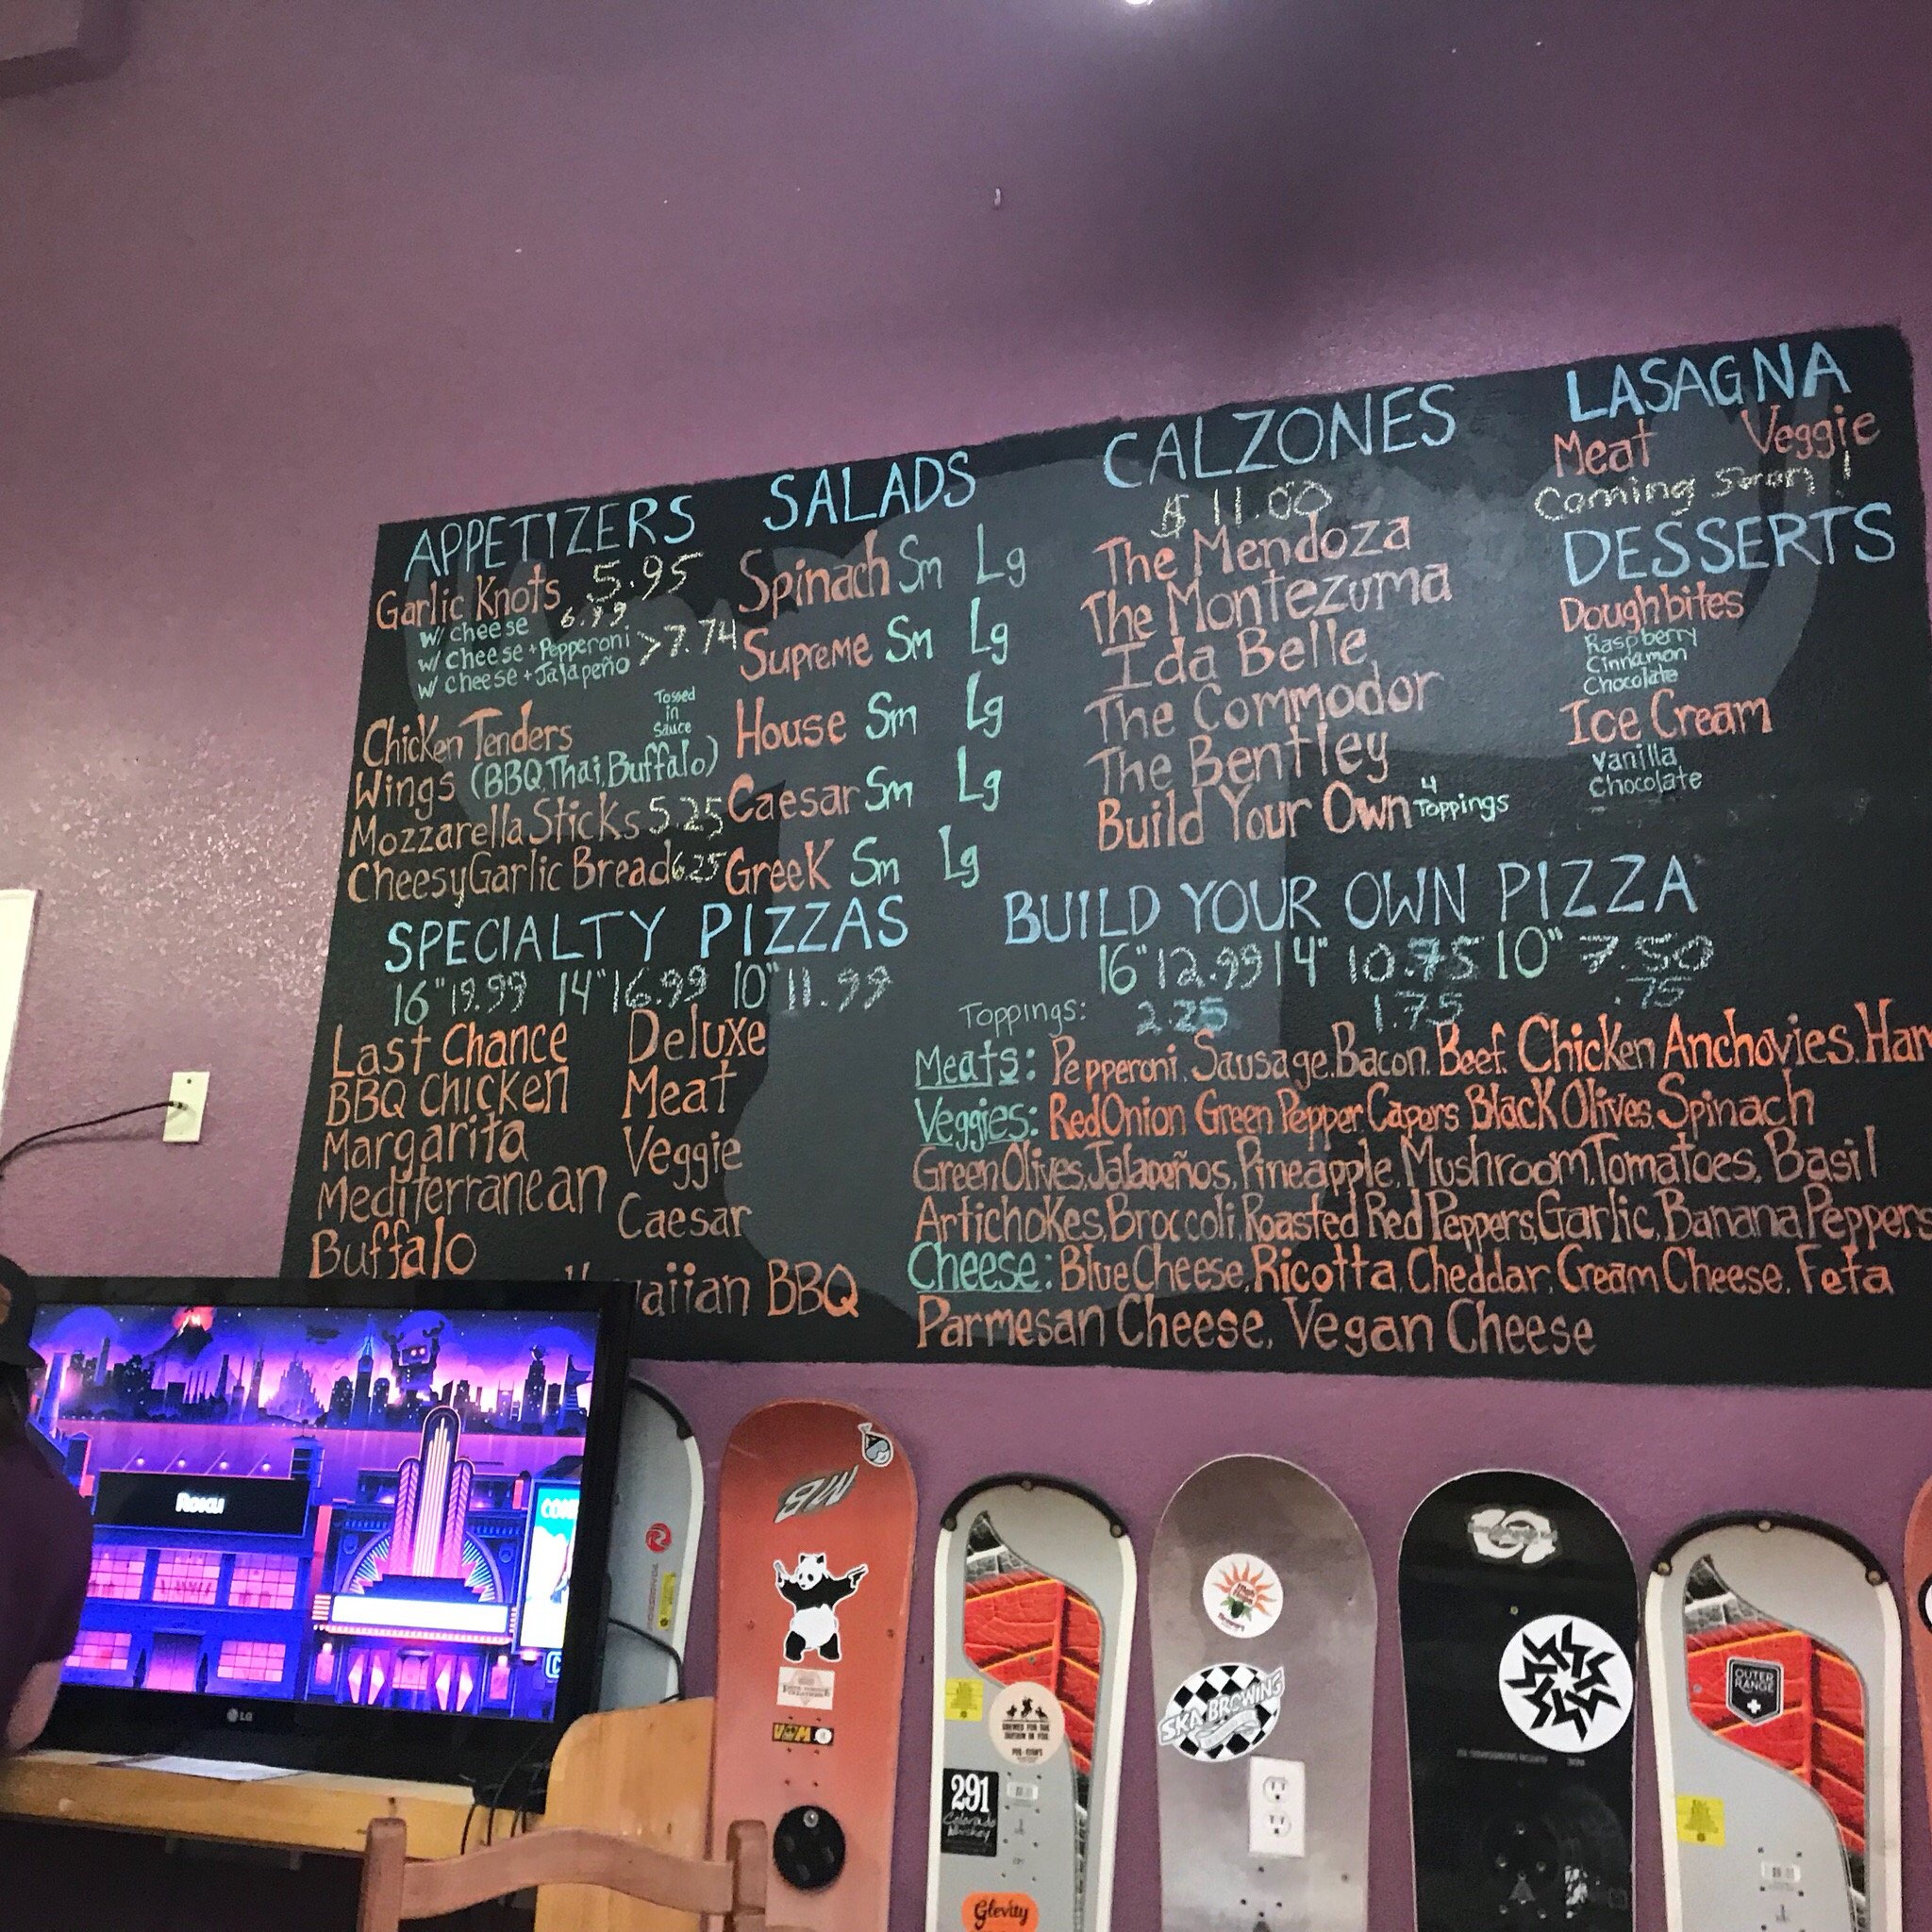 APPETIZERS
Garlic Knots 5.95
w/ cheese 6.99
w/ cheese + Pepperoni >7.74
w/ cheese + Jalapeño
Chicken Tenders
Tossed
in
Sauce
Wings (BBQ, Thai, Buffalo)
Mozzarella Sticks 5.25
Cheesy Garlic Bread 6.25
SALADS
Spinach Sm Lg
Supreme Sm Lg
House Sm Lg
Caesar Sm Lg
Greek Sm Lg
CALZONES
$ 11.00
The Mendoza
The Montezuma
Ida Belle
The Commodor
The Bentley
Build Your Own 4 Toppings
LASAGNA
Meat Veggie
Coming Soon!
DESSERTS
Doughbites
Raspberry
Cinnamon
Chocolate
Ice Cream
Vanilla
Chocolate
SPECIALTY PIZZAS
16" 19.99 14" 16.99 10" 11.99
Last Chance
BBQ Chicken
Margarita
Mediterranean
Buffalo
Deluxe
Meat
Veggie
Caesar
waiian BBQ
BUILD YOUR OWN PIZZA
16" 12.99 14" 10.75 10" 7.50
Toppings: 2.25 1.75 .75
Meats: Pepperoni, Sausage, Bacon, Beef, Chicken Anchovies, Ham
Veggies: Red Onion Green Pepper, Capers Black Olives, Spinach
Green Olives, Jalapeños, Pineapple, Mushroom, Tomatoes, Basil
Artichokes, Broccoli, Roasted Red Peppers, Garlic, Banana Peppers
Cheese: Blue Cheese, Ricotta, Cheddar, Cream Cheese, Feta
Parmesan Cheese, Vegan Cheese
Roku
LG
291
Colorado
Whiskey
Glevity
SKA BREWING
OUTER
RANGE